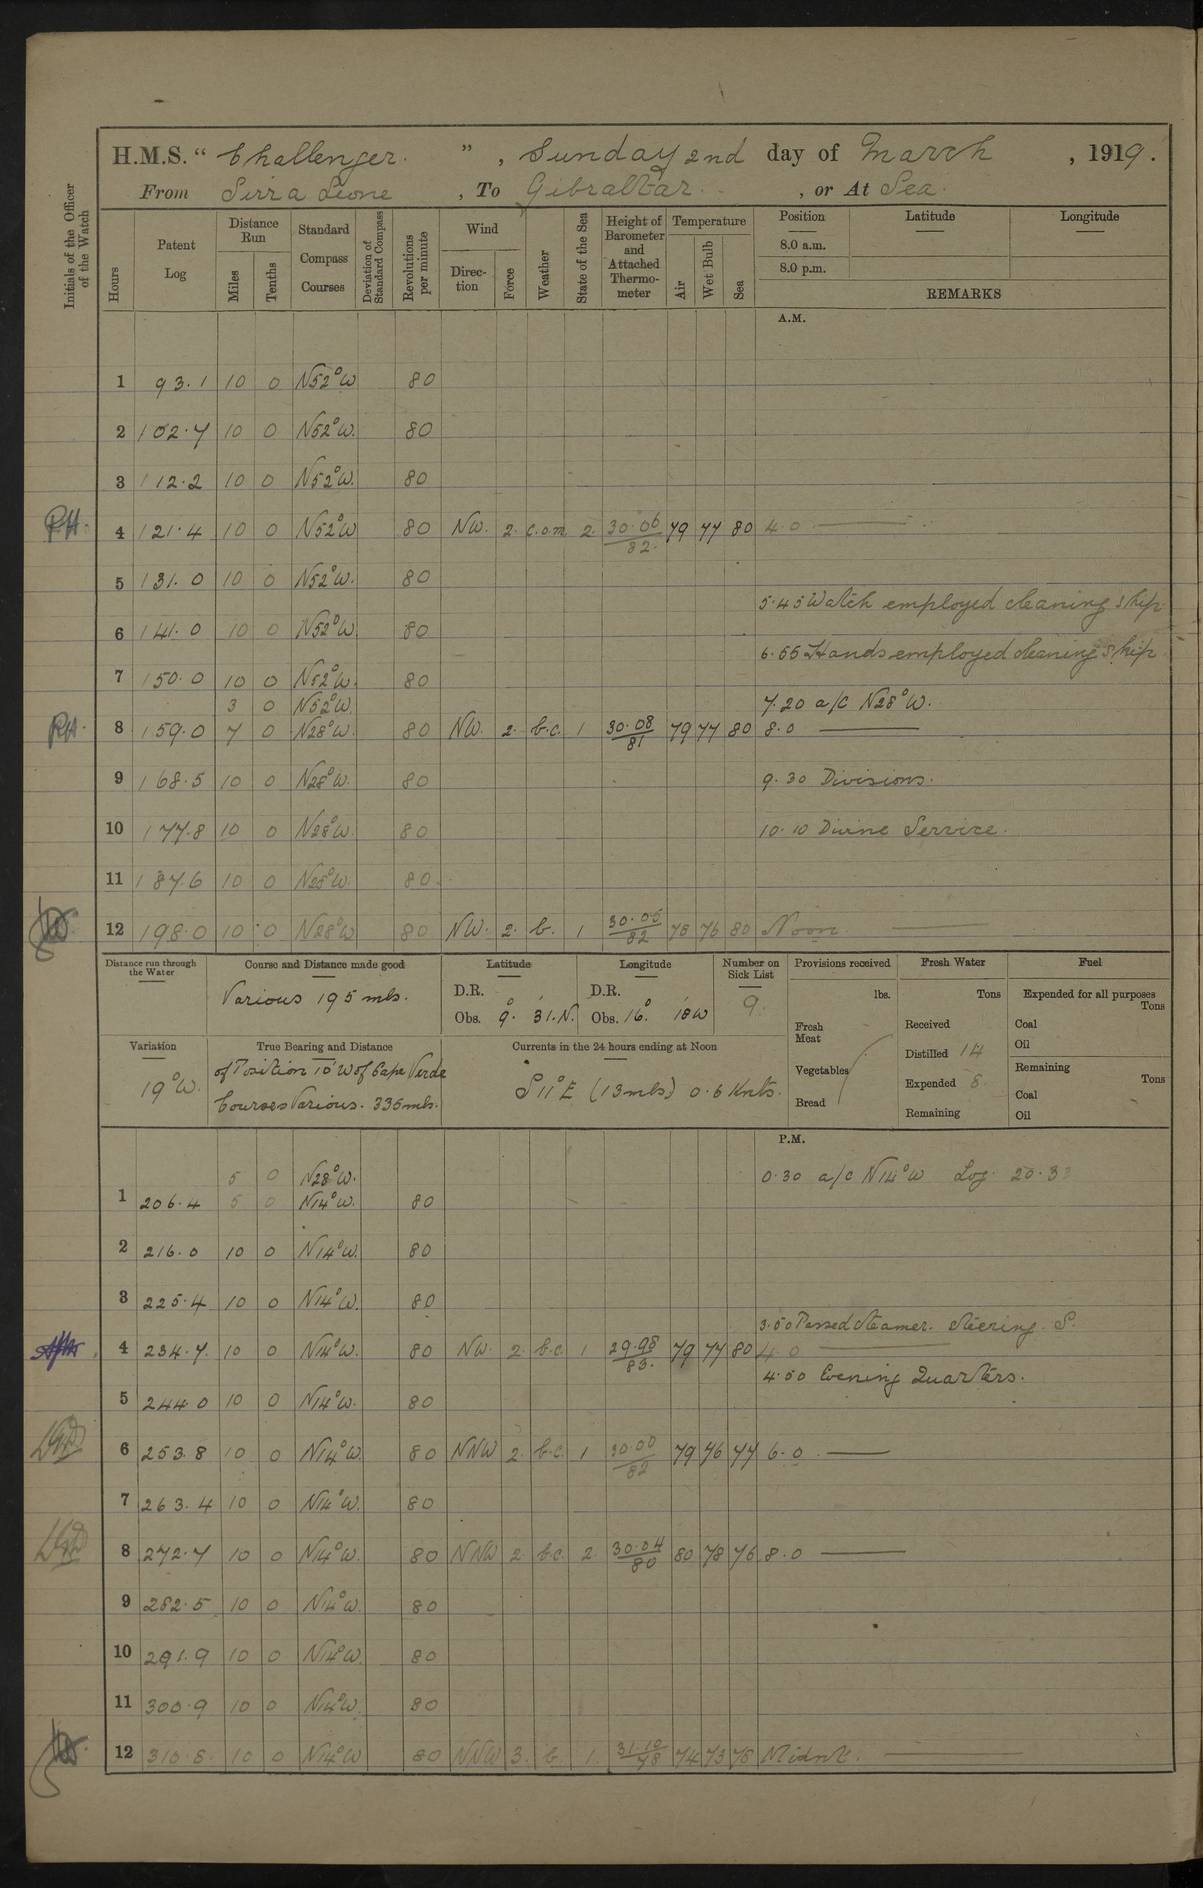 H.M.S. “ Challenger. ” , Sunday 2nd day of March , 1919.
From Sirra Leone , To Gibraltar. , or At Sea.
Initials of the Officer of the Watch
Hours
Patent Log
Distance Run
Miles
Tenths
Standard Compass Courses
Deviation of Standard Compass
Revolutions per minute
Wind
Direction
Force
Weather
State of the Sea
Height of Barometer and Attached Thermometer
Temperature
Air
Wet Bulb
Sea
Position Latitude Longitude
8.0 a.m.
8.0 p.m.
REMARKS
A.M.
1 93.1 10 0 N52°W 80
2 102.7 10 0 N52°W. 80
3 112.2 10 0 N52°W. 80
P.H. 4 121.4 10 0 N52°W 80 NW. 2. c.o.m. 2. 30.06/82. 79 77 80 4.0
5 131.0 10 0 N52°W. 80
5.45 Watch employed cleaning ship
6 141.0 10 0 N52°W. 80
6.55 Hands employed cleaning ship
7 150.0 10 0 N52°W. 80
3 0 N52°W. 7.20 a/c N28°W.
P.H. 8 159.0 7 0 N28°W. 80 NW. 2. b.c. 1 30.08/81 79 77 80 8.0
9 168.5 10 0 N28°W. 80 9.30 Divisions.
10 177.8 10 0 N28°W. 80 10.10 Divine Service.
11 187.6 10 0 N28°W. 80.
12 198.0 10 0 N28°W 80 NW. 2. b. 1 30.05/82 78 76 80 Noon.
Distance run through the Water
Course and Distance made good
Various 195 mls.
Latitude
D.R.
Obs. 9° 31'. N.
Longitude
D.R.
Obs. 16° 18' W
Number on Sick List
9.
Provisions received
lbs.
Fresh Meat
Vegetables
Bread
Fresh Water
Tons
Received
Distilled 14
Expended 8
Remaining
Fuel
Expended for all purposes
Tons
Coal
Oil
Remaining
Tons
Coal
Oil
Variation
19°W.
True Bearing and Distance
of Position 10' W of Cape Verde
Courses Various. 335 mls.
Currents in the 24 hours ending at Noon
S 11° E (13 mls) 0.6 Knts.
P.M.
5 0 N28°W. 0.30 a/c N14°W Log 20.3
1 206.4 5 0 N14°W. 80
2 216.0 10 0 N14°W. 80
3 225.4 10 0 N14°W. 80
3.50 Passed steamer. steering S.
4 234.7. 10 0 N14°W. 80 NW. 2. b.c. 1 29.98/83. 79 77 80 4.0
4.50 Evening Quarters.
5 244.0 10 0 N14°W. 80
6 253.8 10 0 N14°W. 80 NNW 2. b.c. 1 30.00/82 79 76 77 6.0
7 263.4 10 0 N14°W. 80
8 272.7 10 0 N14°W. 80 NNW 2 b.c. 2. 30.04/80 80 78 76 8.0
9 282.5 10 0 N14°W. 80
10 291.9 10 0 N14°W. 80
11 300.9 10 0 N14°W. 80
12 310.8. 10 0 N14°W 80 NNW 3. b. 1. 31.10/78 74 73 78 Midnt.